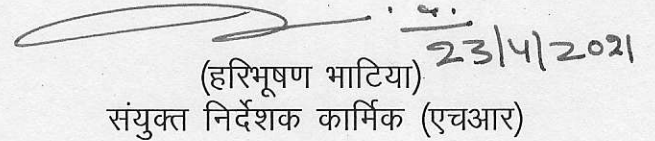 23/4/2021
(हरिभूषण भाटिया)
संयुक्त निर्देशक कार्मिक (एचआर)